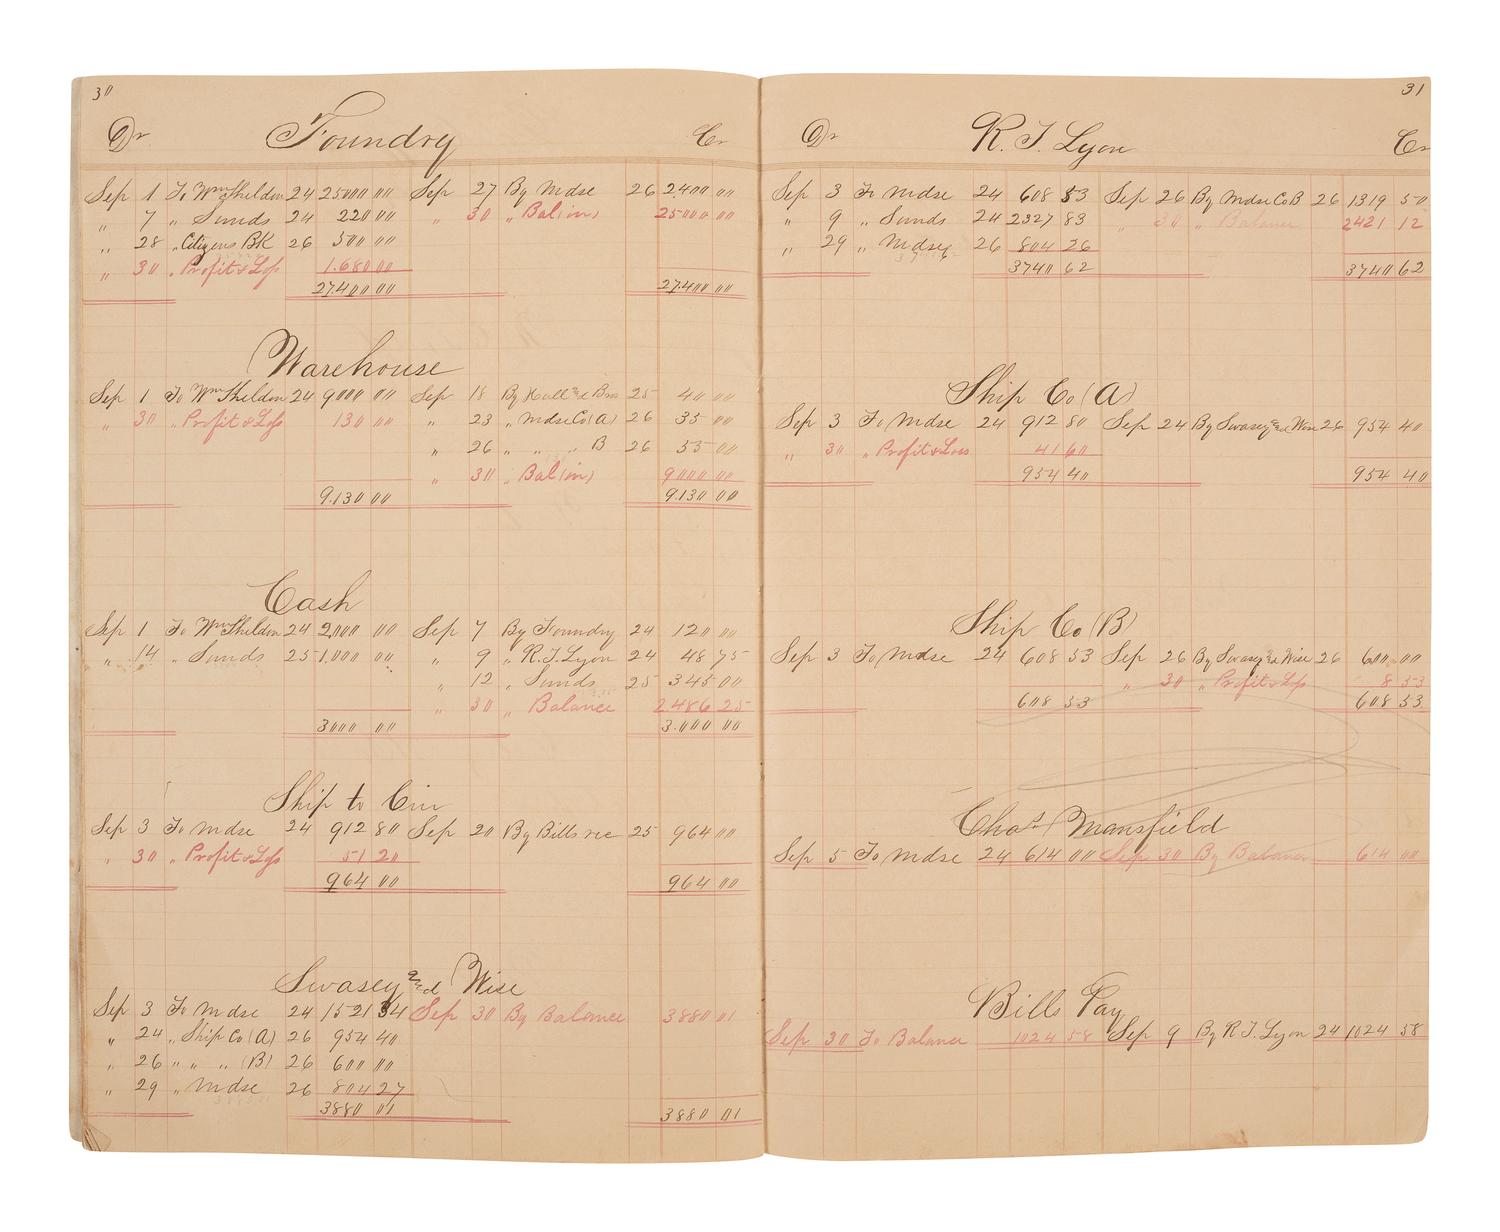 30
Dr Foundry Cr
Sep 1 To Wm Sheldon 24 25000 00 Sep 27 By Mdse 26 2400 00
" 7 " Sunds 24 220 00 " 30 " Bal(in) 25000 00
" 28 " Citizens BK 26 500 00
" 30 " Profit & Loss 1.680 00
27.400 00 27.400 00
Warehouse
Sep 1 To Wm Sheldon 24 9000 00 Sep 18 By Hall and Bros 25 40 00
" 30 " Profit & Loss 130 00 " 23 " Mdse Co (A) 26 35 00
" 26 " " " B 26 55 00
" 30 " Bal(in) 9000 00
9.130 00 9.130 00
Cash
Sep 1 To Wm Sheldon 24 2,000 00 Sep 7 By Foundry 24 120 00
" 14 " Sunds 25 1,000 00 " 9 " R.T. Lyon 24 48 75
" 12 " Sunds 25 345 00
" 30 " Balance 2486 25
3000 00 3.000 00
Ship to Cin
Sep 3 To Mdse 24 912 80 Sep 20 By Bills rec 25 964 00
" 30 " Profit & Loss 51 20
964 00 964 00
Swasey and Wise
Sep 3 To Mdse 24 1521 34 Sep 30 By Balance 3880 01
" 24 " Ship Co (A) 26 954 40
" 26 " " " (B) 26 600 00
" 29 " Mdse 26 804 27
3880 01 3880 01
31
Dr R. T. Lyon Cr
Sep 3 To Mdse 24 608 53 Sep 26 By Mdse Co B 26 1319 50
" 9 " Sunds 24 2327 83 " 30 " Balance 2421 12
" 29 " Mdse 26 804 26
3740 62 3740 62
Ship Co (A)
Sep 3 To Mdse 24 912 80 Sep 24 By Swasey and Wise 26 954 40
" 30 " Profit & Loss 41 60
954 40 954 40
Ship Co (B)
Sep 3 To Mdse 24 608 53 Sep 26 By Swasey and Wise 26 600 00
" 30 " Profit & Loss 8 53
608 53 608 53
Chas Mansfield
Sep 5 To Mdse 24 614 00 Sep 30 By Balance 614 00
Bills Pay
Sep 30 To Balance 1024 58 Sep 9 By R.T. Lyon 24 1024 58